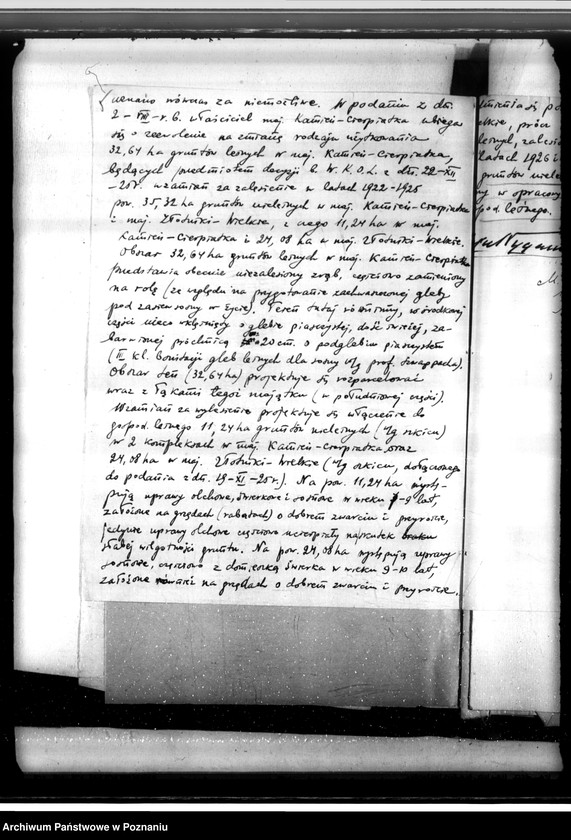 uznano również za niemożliwe. W podaniu z dn.
2-VIII-r.b. właściciel maj. Kamień-Cierpiatka ubiega
się o zezwolenie na zmianę rodzaju użytkowania
32,64 ha gruntów leśnych w maj. Kamień-Cierpiatka,
będących przedmiotem decyzji b. W.K.O.L. z dn. 22-XII
-25r. wzamian za zalesienie w latach 1922-1925
pow. 35,32 ha gruntów nieleśnych w maj. Kamień-Cierpiatka
i maj. Złotniki-Wielkie, z czego 11,24 ha w maj.
Kamień-Cierpiatka i 24,08 ha w maj. Złotniki-Wielkie.
Obszar 32,64 ha gruntów leśnych w maj. Kamień-Cierpiatka
przedstawia obecnie niezalesiony zrąb, częściowo zamieniony
na rolę (ze względu na przygotowanie zachwaszczonej gleby
pod zasiew sosny w życie). Teren tutaj równinny, w środkowej
części nieco wklęsły o glebie piaszczystej, dość świeżej, za-
barwionej próchnicą do 20 cm. o podglebiu piaszczystem
(III kl. bonitacji gleb leśnych dla sosny wg prof. Schwappacha).
Obszar ten (32,64 ha) projektuje się rozparcelować
wraz z łąkami tegoż majątku (w południowej części).
Wzamian za wylesienie projektuje się włączenie do
gospod. leśnego 11,24 ha gruntów nieleśnych (wg szkicu)
w 2 kompleksach w maj. Kamień-Cierpiatka, oraz
24,08 ha w maj. Złotniki-Wielkie (wg szkicu, dołączonego
do podania z dn. 19-XI-25r.). Na pow. 11,24 ha wystę-
pują uprawy olchowe, świerkowe i sosnowe w wieku 7-9 lat,
założone na grzędach (rabatach) o dobrem zwarciu i przyroście,
jedynie uprawy olchowe częściowo ucierpiały naskutek braku
słabej wilgotności gruntu. Na pow. 24,08 ha występują uprawy
sosnowe, częściowo z domieszką świerka w wieku 9-10 lat,
założone również na grzędach o dobrem zwarciu i przyroście.
w oprac
gospod. leśnego.
latach 1926 i
Archiwum Państwowe w Poznaniu